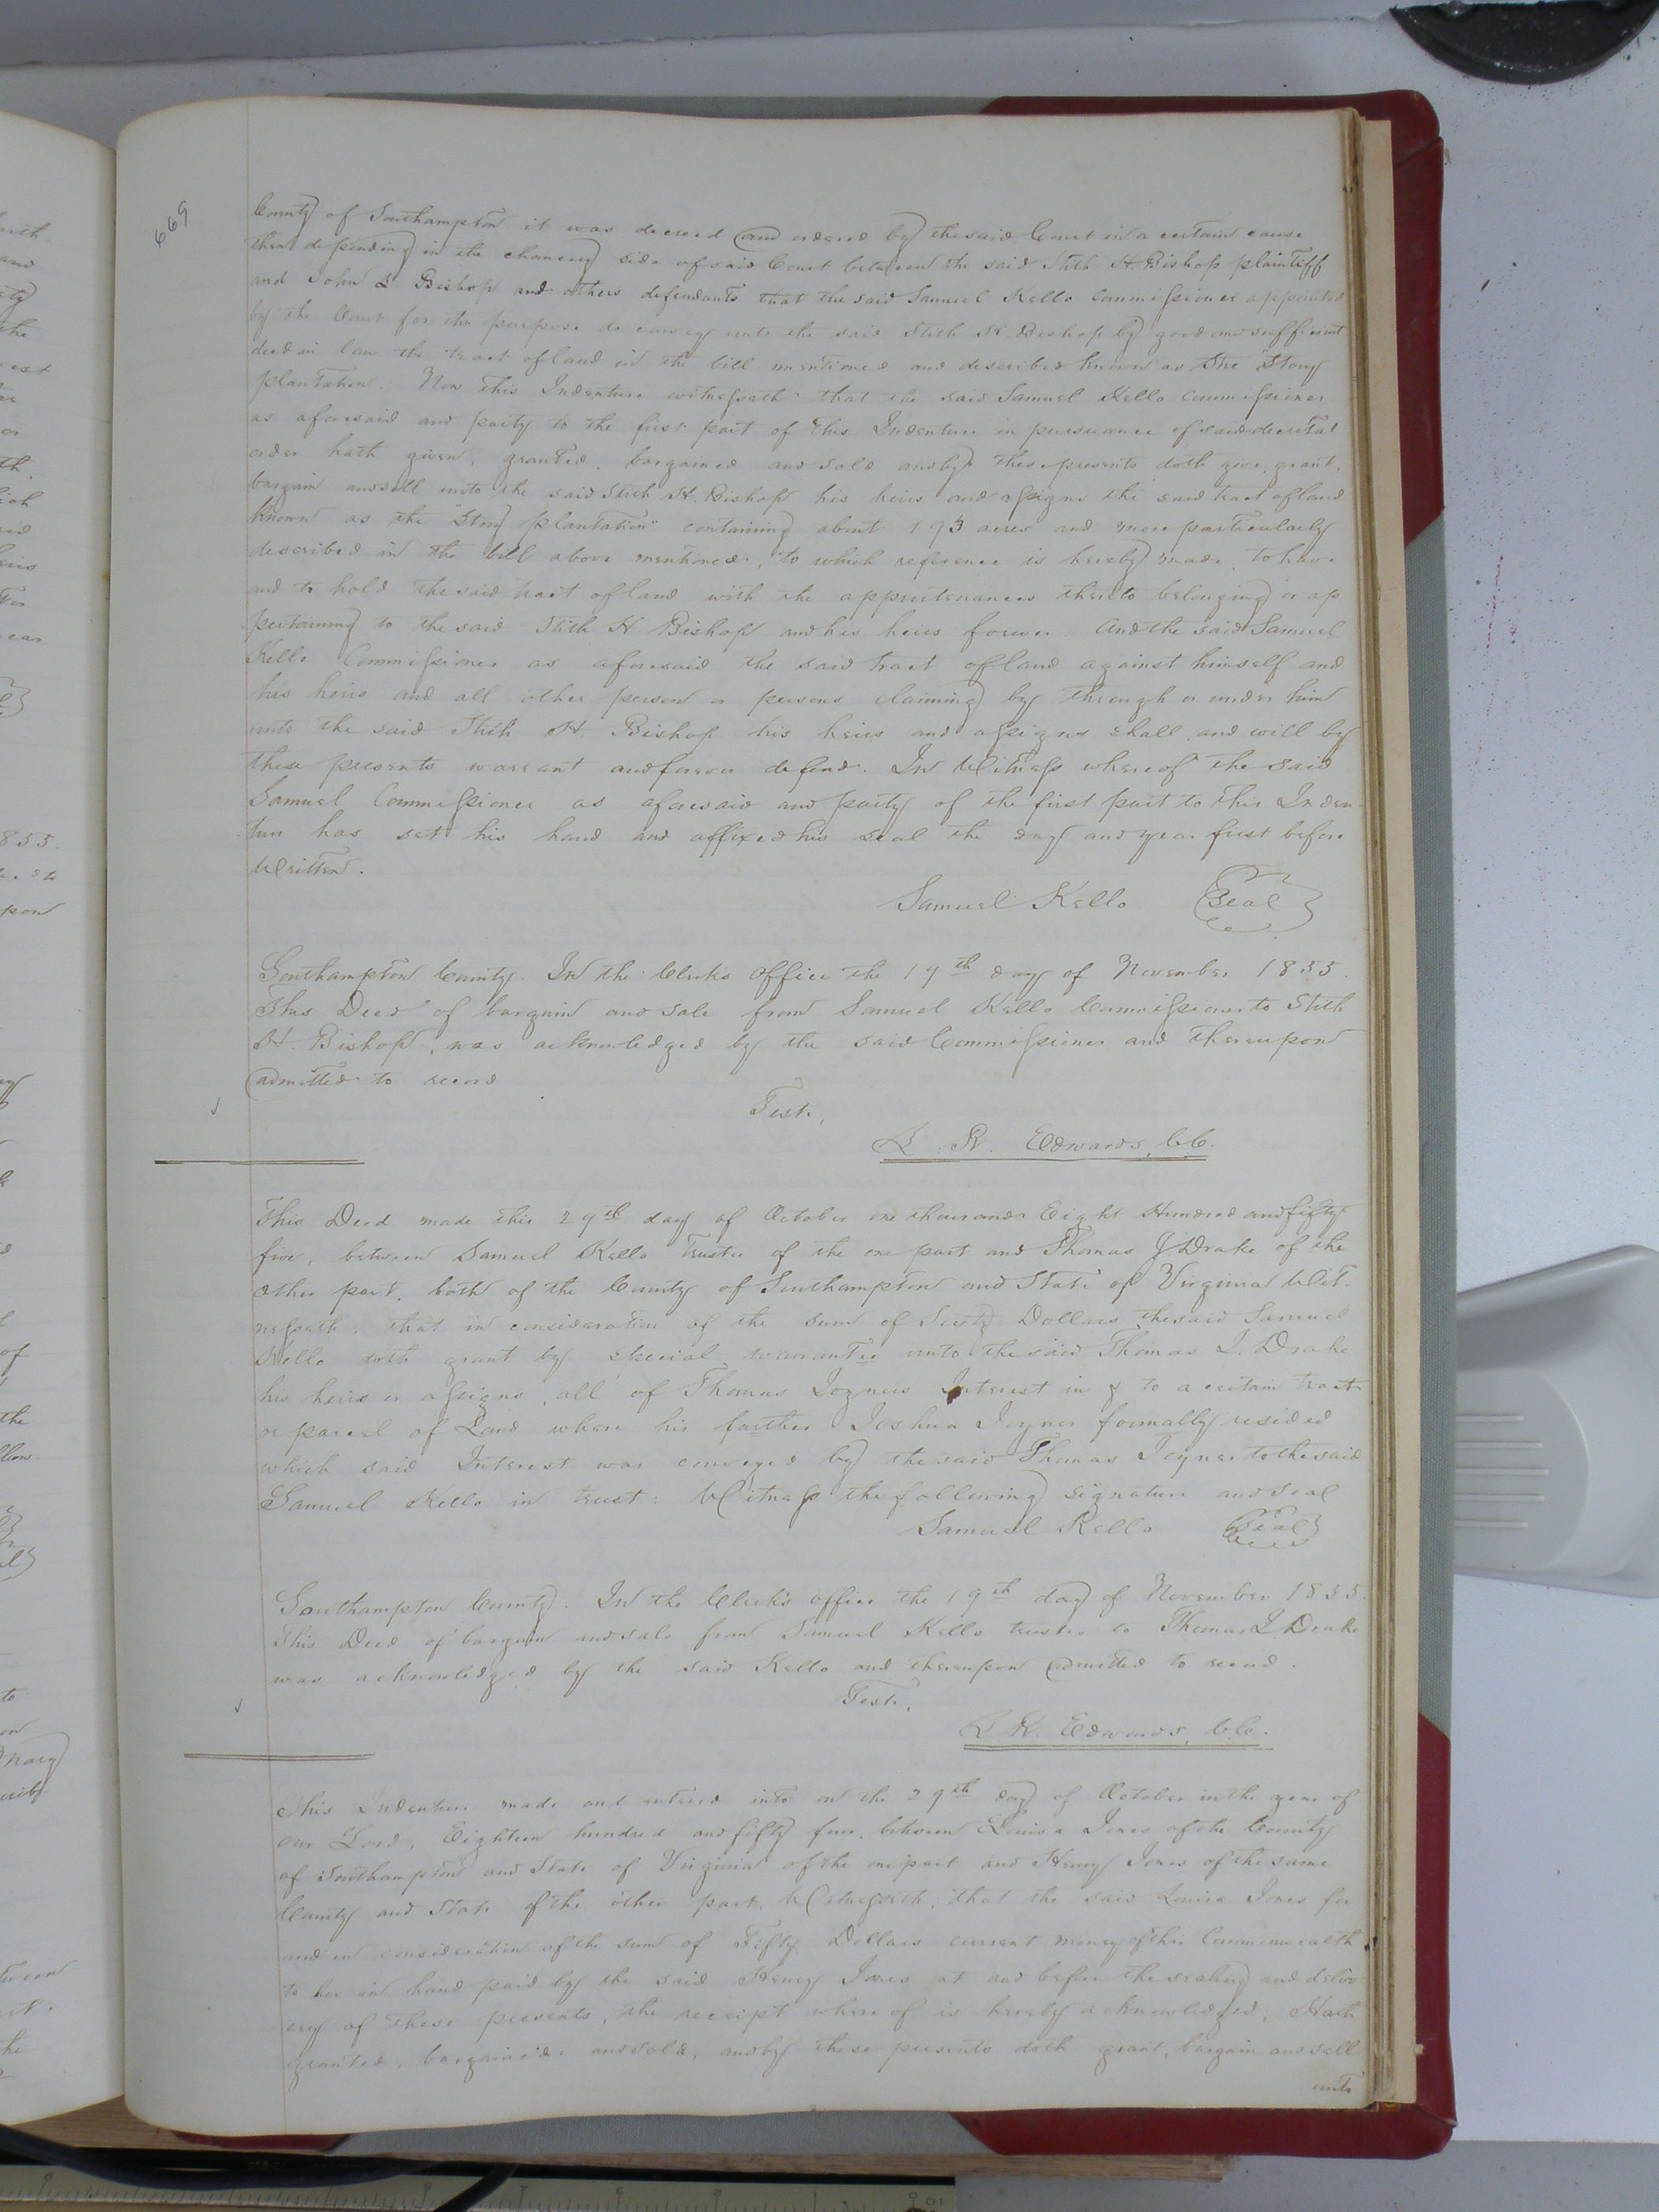 669
County of Southampton it was decreed and ordered by the said Court in a certain cause
then depending in the chancery side of said Court between the said Stith H. Bishop plaintiff
and John L Bishop and others defendants that the said Samuel Kello Commissioner appointed
by the Court for the purpose do convey unto the said Stith H. Bishop by good and sufficient
deed in law the tract of land in the bill mentioned and described known as the "Story
plantation. Now this Indenture witnesseth that the said Samuel Kello Commissioner
as aforesaid and party to the first part of this Indenture in pursuance of said decretal
order hath given, granted, bargained and sold and by these presents doth give, grant,
bargain and sell unto the said Stith H. Bishop his heirs and assigns the said tract of land
known as the "Story plantation" containing about 193 acres and more particularly
described in the bill above mentioned, to which reference is hereby made, to have
and to hold the said tract of land with the appurtenances thereto belonging or ap
pertaining to the said Stith H Bishop and his heirs forever. And the said Samuel
Kello Commissioner as aforesaid the said tract of land against himself and
his heirs and all other person or persons claiming by through or under him
unto the said Stith H Bishop his heirs and assigns shall and will by
these presents warrant and forever defend. In Witness whereof the said
Samuel Commissioner as aforesaid and party of the first part to this Inden-
ture has set his hand and affixed his seal the day and year first before
Written.
Samuel Kello Seal
Southampton County. In the Clerk's Office the 19th day of November 1855.
This Deed of bargain and sale from Samuel Kello Commissioner to Stith
H. Bishop, was acknowledged by the said Commissioner and thereupon
admitted to record
Test,
L. R. Edwards, C.C.
This Deed made this 29th day of October one thousand Eight Hundred and fifty
five, between Samuel Kello Trustee of the one part and Thomas J Drake of the
other part, both of the County of Southampton and State of Virginia Wit-
nesseth, that in consideration of the sum of Sixty Dollars the said Samuel
Kello doth grant by special warrantee unto the said Thomas J. Drake
his heirs or assigns, all of Thomas Joyners Interest in & to a certain tract
or parcel of Land where his farther Joshua Joyner formally resided
which said Interest was conveyed by the said Thomas Joyner to the said
Samuel Kello in trust: Witness the following signature and seal
Samuel Kello Seal
Southampton County. In the Clerk's office the 19th day of November 1855.
This Deed of bargain and sale from Samuel Kello trustee to Thomas J. Drake
was acknowledged by the said Kello and thereupon admitted to record.
Test,
L R. Edwards, C.C.
This Indenture made and entered into on the 29th day of October in the year of
our Lord, Eighteen hundred and fifty five, between Louisa Jones of the County
of Southampton and State of Virginia of the one part and Henry Jones of the same
County and State of the other part, Witnesseth, that the said Louisa Jones for
and in consideration of the sum of Fifty Dollars current money of this Commonwealth
to her in hand paid by the said Henry Jones at and before the sealing and deliv
ery of these presents, the receipt whereof is hereby acknowledged, Hath
granted, bargained and sold, and by these presents doth grant, bargain and sell
unto